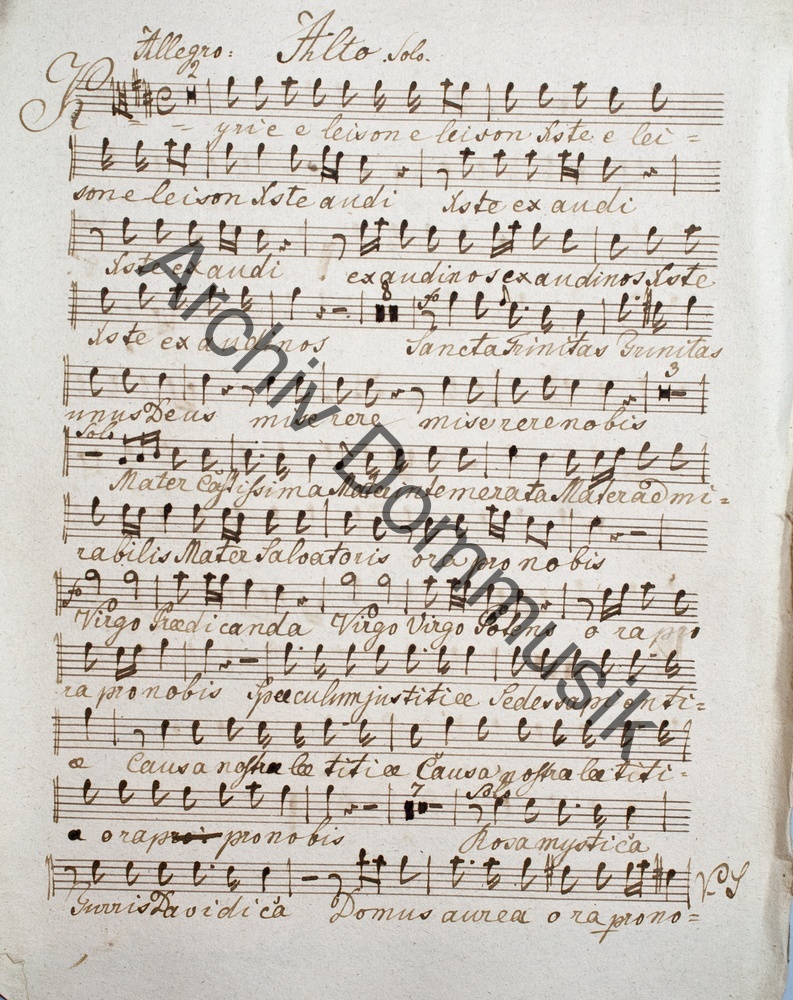 Allegro: Alto Solo.
2
Kyrie e leison e leison Xste e lei=
son e leison Xste audi Xste ex audi
Xste ex audi ex audi nos ex audi nos Xste
8 fo
Xste ex audi nos Sancta Trinitas Trinitas
3
unus Deus miserere miserere nobis
Solo
Mater Castissima Mater intemerata Mater admi=
rabilis Mater Salvatoris ora pro nobis
fo
Virgo Prædicanda Virgo Virgo Potens o ra pro
ra pro nobis Speculum justitiæ Sedes sapienti=
æ Causa nostræ lætitiæ Causa nostræ lætiti=
7 Solo
a ora pro nobis Rosa mystica
Turris Davidica Domus aurea o ra pro no=
VS
Archiv Dommusik